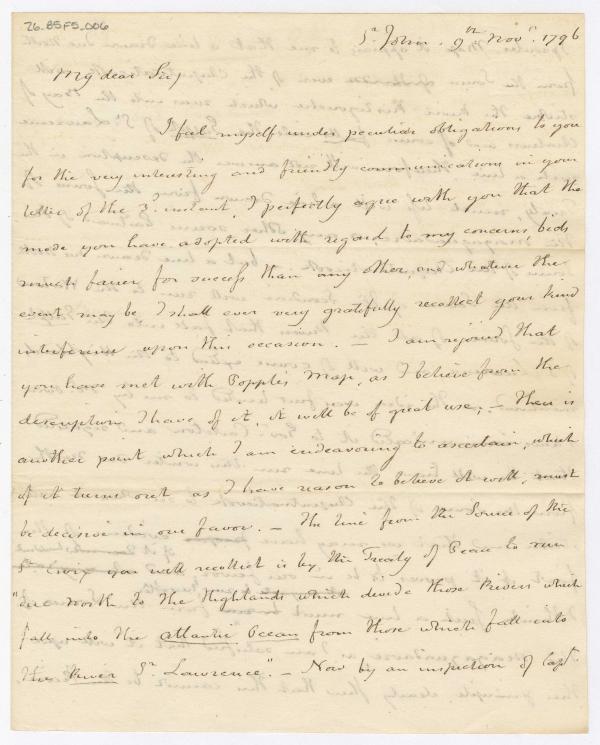 26.85F5.006
St. John. 9th. Novr. 1796
My dear Sir,
I feel myself under peculiar obligations to you
for the very interesting and friendly communications in your
letter of the 3d. instant. I perfectly agree with you that the
mode you have adopted with regard to my concerns, bids
much fairer for success than any other, and whatever the
event may be, I shall ever very gratefully recollect your kind
interference upon this occasion. — I am rejoiced that
you have met with Popples Map, as I believe from the
description I have of it, it will be of great use; — There is
another point which I am endeavouring to ascertain, which
if it turns out as I have reason to believe it will, must
be decisive in our favor. — The line from the Source of the
St. Croix you will recollect is by the Treaty of Peace to run
"due North to the Highlands which divide those Rivers which
fall into the atlantic Ocean from those which fall into
the River St. Lawrence". — Now by an inspection of Capt.